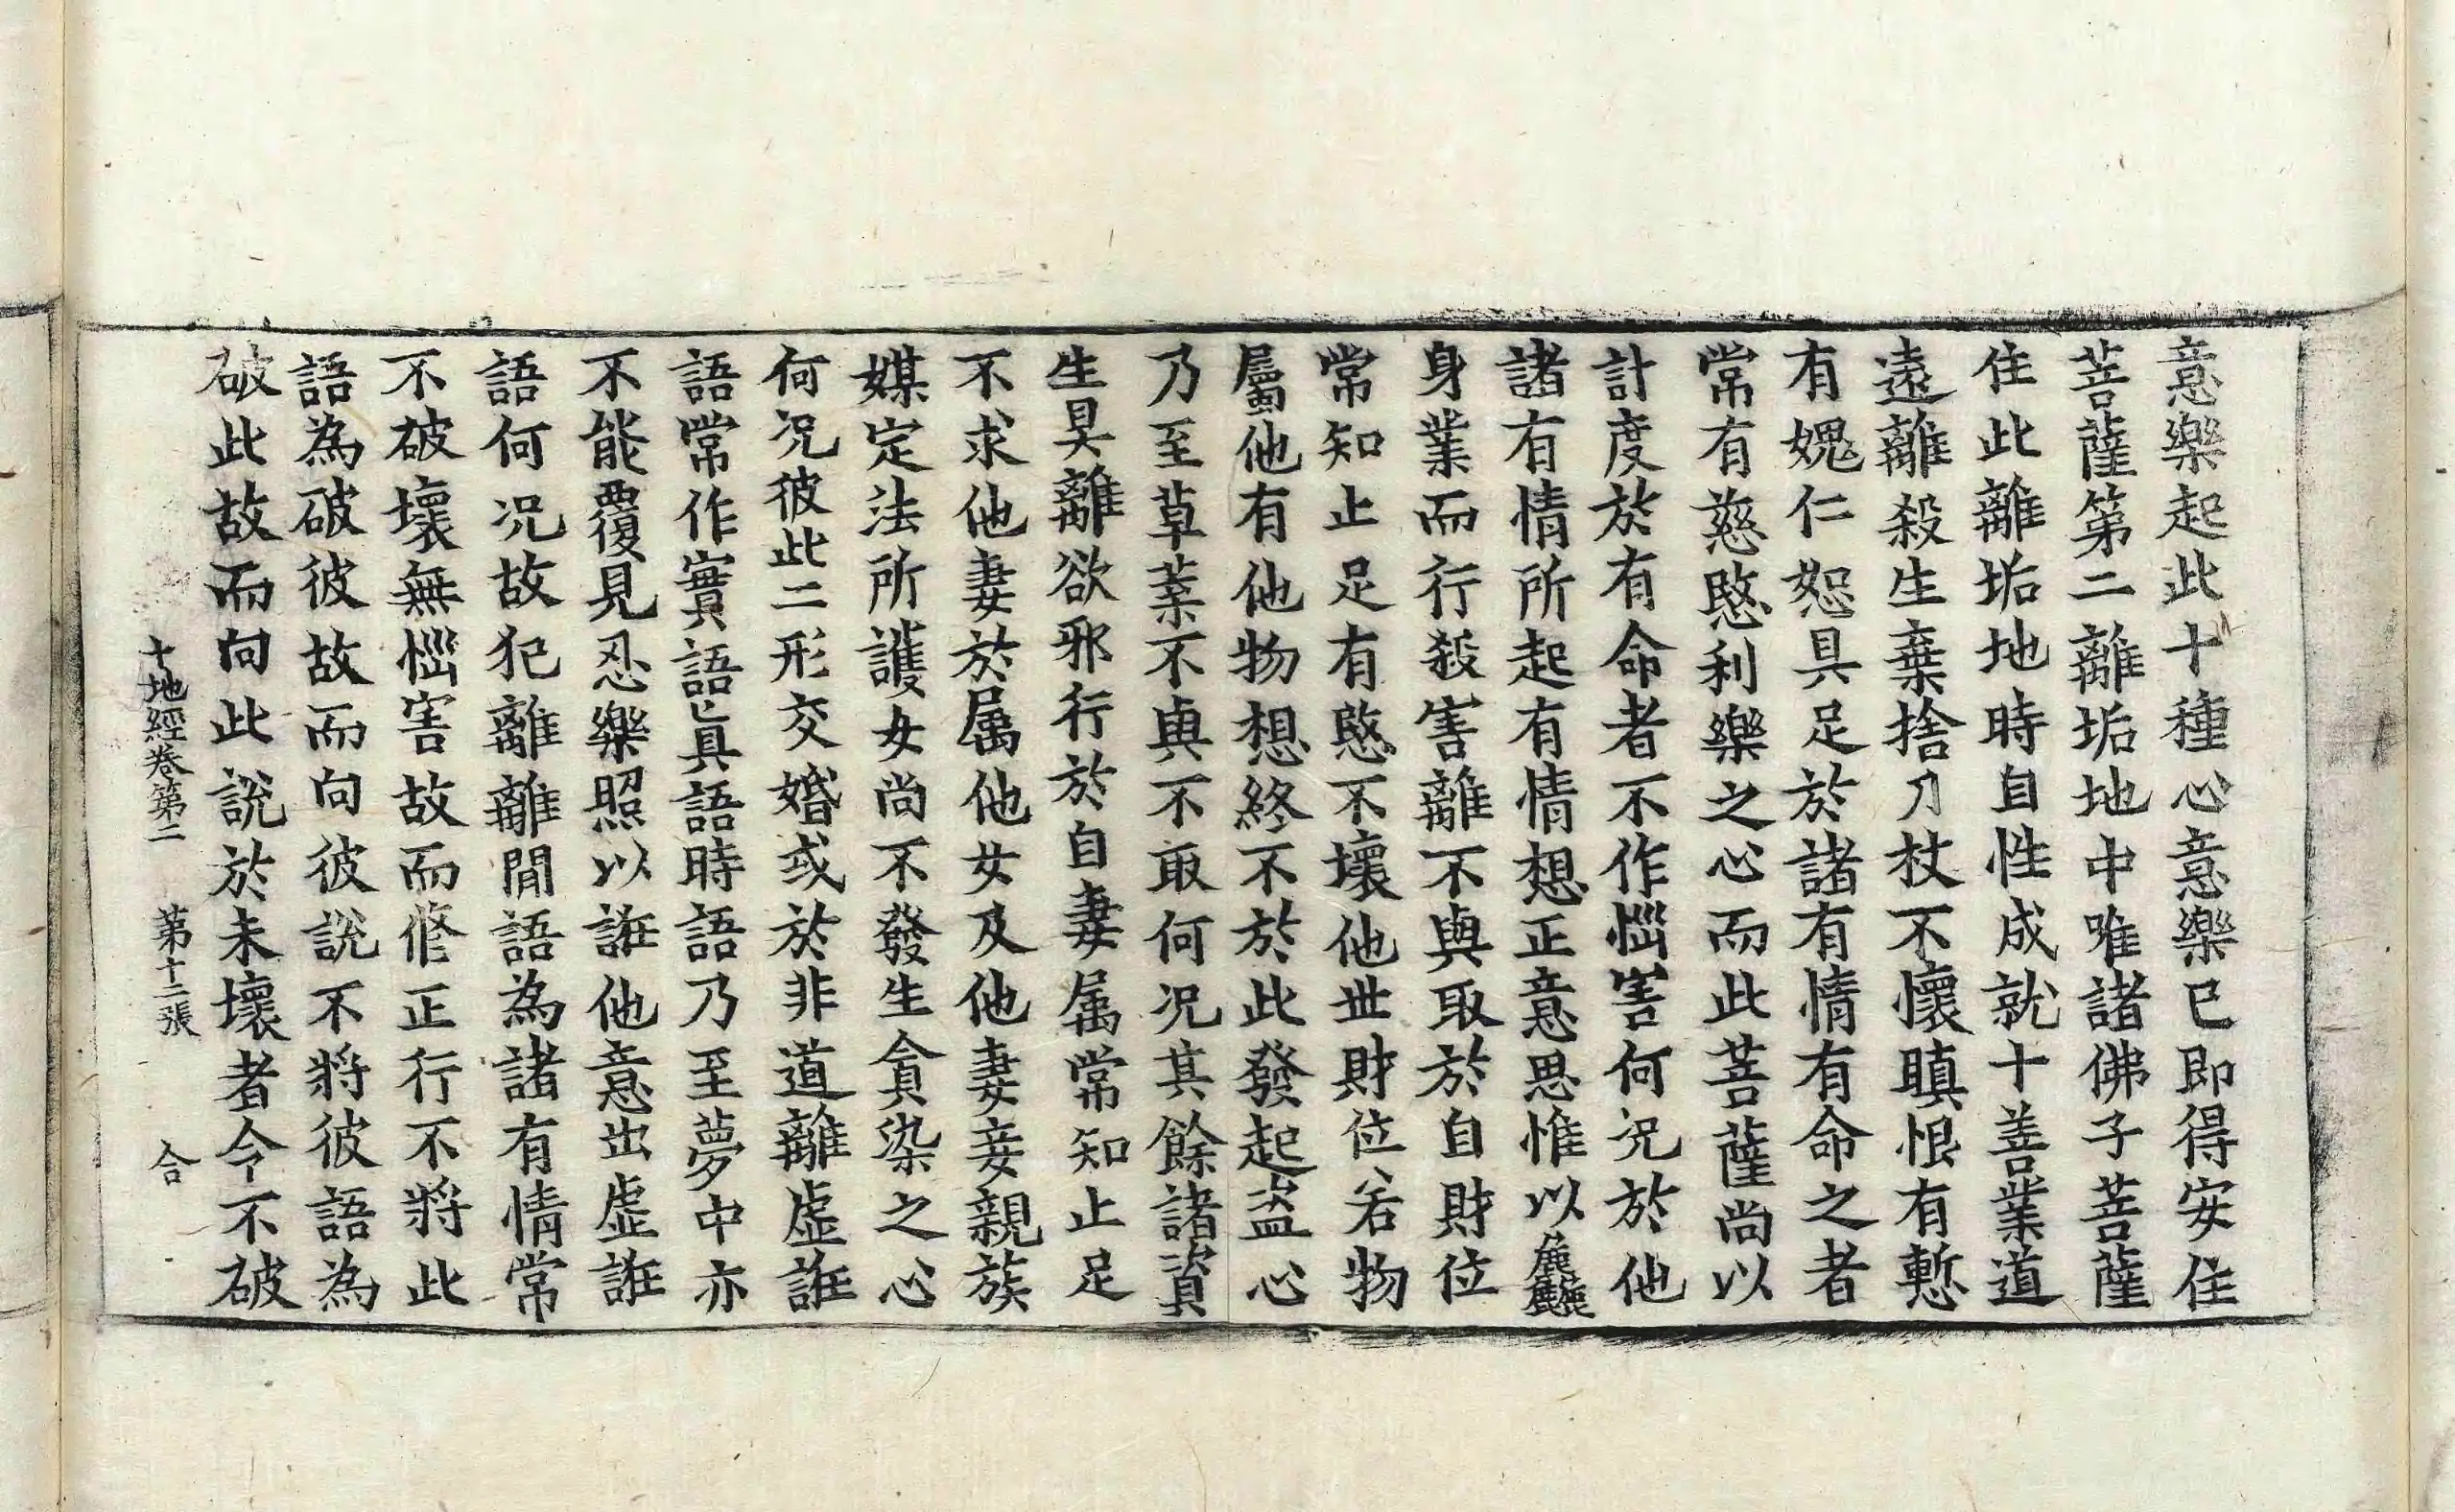 意樂起此十種心意樂已即得安住
菩薩第二離垢地中唯諸佛子菩薩
住此離垢地時自性成就十善業道
遠離殺生棄捨刀杖不懷瞋恨有慙
有媿仁恕具足於諸有情有命之者
常有慈愍利樂之心而此菩薩尚以
計度於有命者不作惱害何況於他
諸有情所起有情想正意思惟以麁麤
身業而行殺害離不與取於自財位
常知止足有愍不壞他世財位若物
屬他有他物想終不於此發起盜心
乃至草葉不與不取何況其餘諸資
生具離欲邪行於自妻属常知止足
不求他妻於属他女及他妻妾親族
媒定法所護女尚不發生貪染之心
何况彼此二形交婚或於非道離虛誑
語常作實語真語時語乃至夢中亦
不能覆見忍樂照以誑他意出虛誑
語何况故犯離離間語為諸有情常
不破壞無惱害故而修正行不將此
語為破彼故而向彼說不將彼語為
破此故而向此說於未壞者令不破
十地經卷第二 第十二張 合